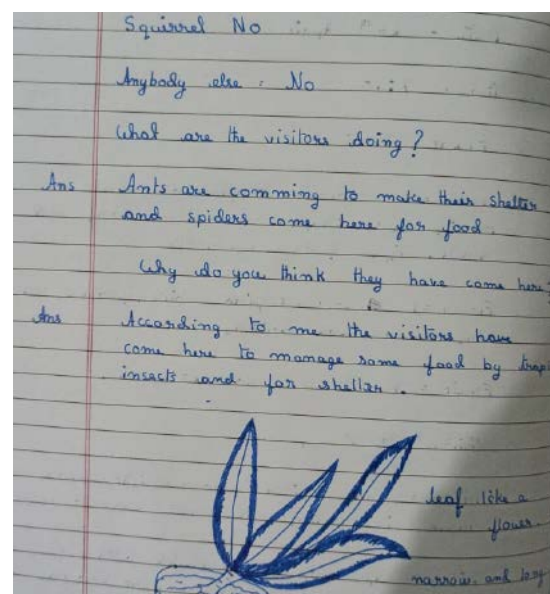 Squirrel No
Anybody else. No
What are the visitors doing?
Ans Ants are comming to make their shelter
and spiders come here for food.
Why do you think they have come here?
Ans According to me the visitors have
come here to manage some food by
insects and for shelter.
leaf like a
flower.
narrow and